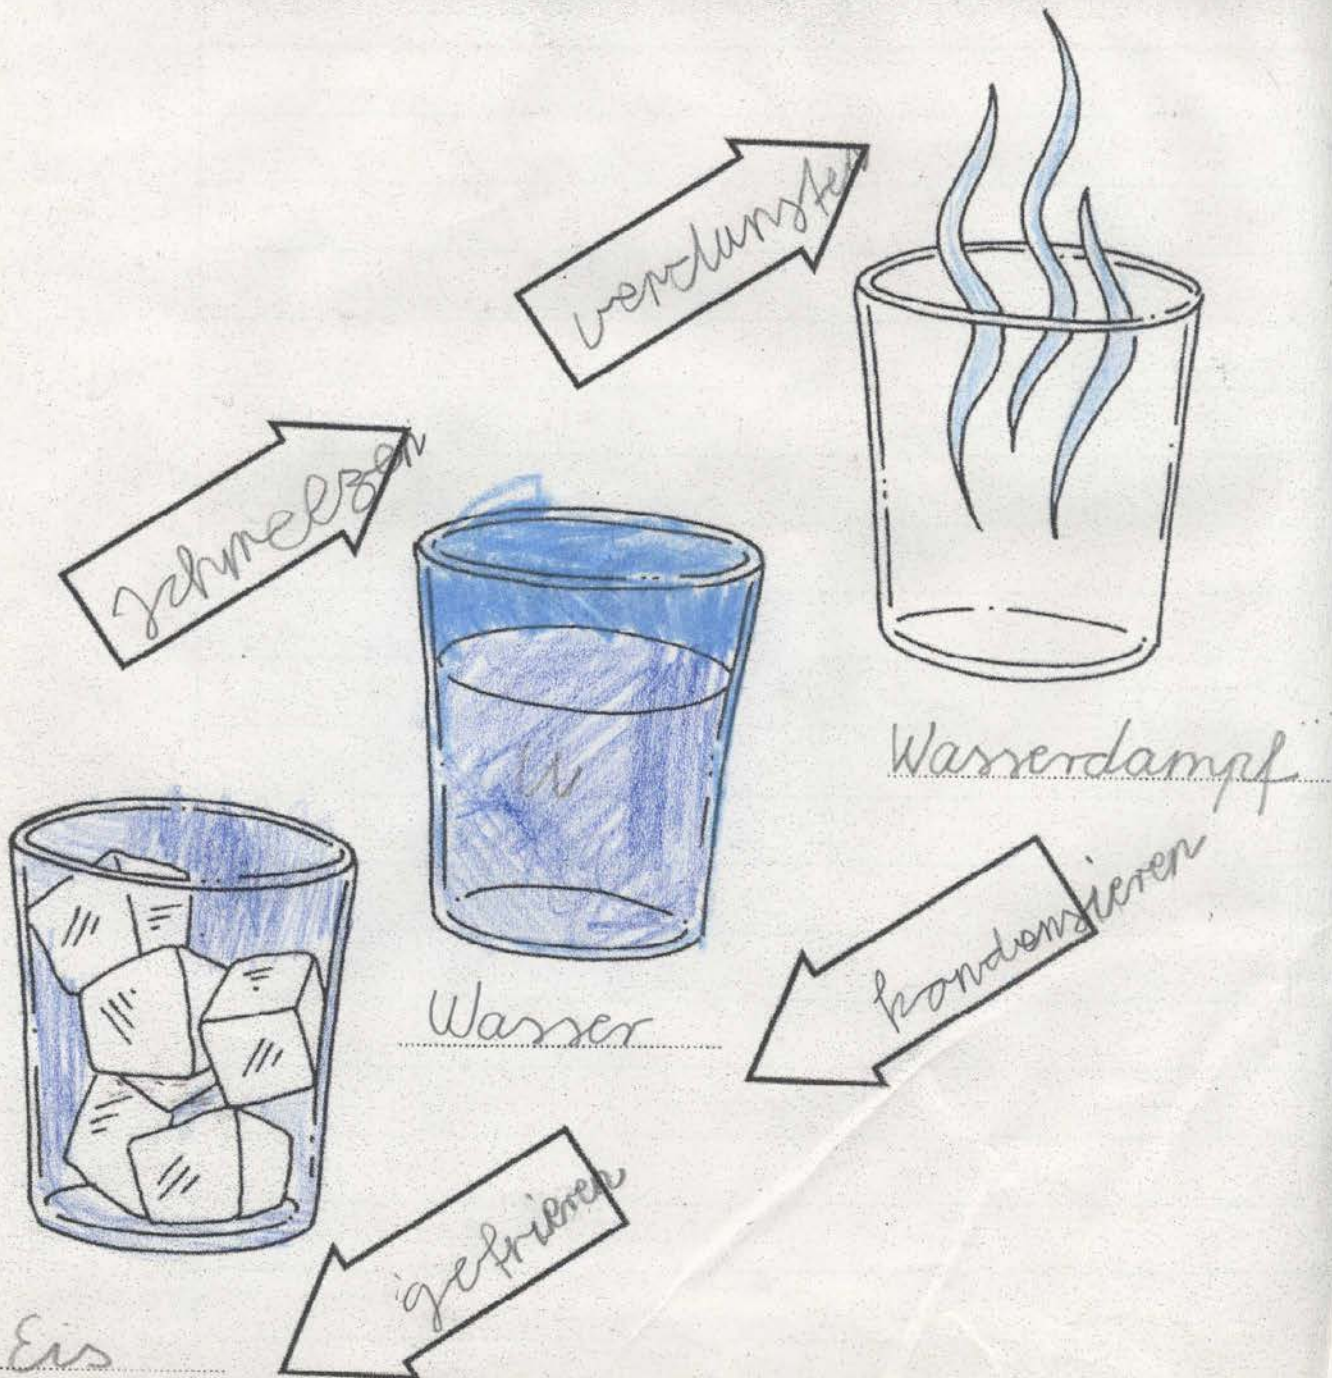 verdunsten
schmelzen
W
Wasserdampf
Wasser
kondensieren
gefrieren
Eis